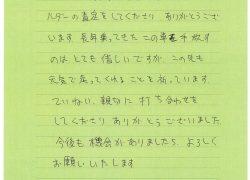 ルダーの査定をしてくださり ありがとうござ
います。長年乗ってきた この車を手放す
のは とても惜しいですが、この先も
元気で走ってくれることを祈っています。
ていねい、親切に 打ち合わせを
してくださり ありがとうございました。
今後も機会がありましたら、よろしく
お願いいたします